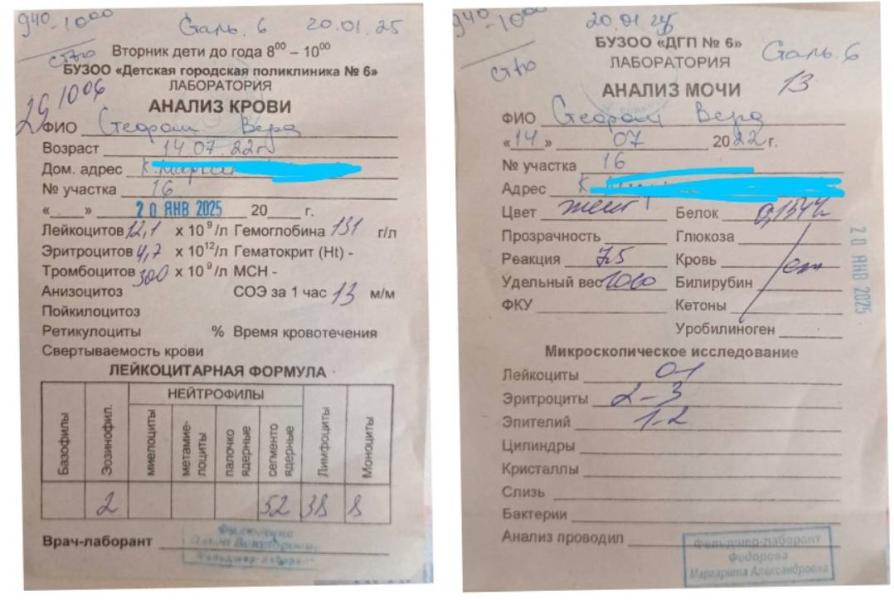 940-1000 Сталь. 6 20.01.25
Вторник дети до года 8⁰⁰ – 10⁰⁰
БУЗОО «Детская городская поликлиника № 6»
ЛАБОРАТОРИЯ
АНАЛИЗ КРОВИ
ФИО Вера
Возраст 14.07.22г
Дом. адрес
№ участка 16
« » 20 ЯНВ 2025 20 г.
Лейкоцитов 12,1 х 10⁹/л Гемоглобина 131 г/л
Эритроцитов 4,7 х 10¹²/л Гематокрит (Ht) -
Тромбоцитов 300 х 10⁹/л МСН -
Анизоцитоз СОЭ за 1 час 13 м/м
Пойкилоцитоз
Ретикулоциты % Время кровотечения
Свертываемость крови
ЛЕЙКОЦИТАРНАЯ ФОРМУЛА
НЕЙТРОФИЛЫ
Базофилы
Эозинофил.
миелоциты
метамие-
лоциты
палочко
ядерные
сегменто
ядерные
Лимфоциты
Моноциты
2 52 38 8
Врач-лаборант
940-1000 20.01.25
БУЗОО «ДГП № 6»
ЛАБОРАТОРИЯ Сталь. 6
АНАЛИЗ МОЧИ 13
ФИО Вера
«14» 07 2022г.
№ участка 16
Адрес
Цвет Белок
Прозрачность Глюкоза
Реакция 7.5 Кровь
Удельный вес Билирубин
ФКУ Кетоны
Уробилиноген
20 ЯНВ 2025
Микроскопическое исследование
Лейкоциты 0-1
Эритроциты 2-3
Эпителий 1-2
Цилиндры
Кристаллы
Слизь
Бактерии
Анализ проводил
Фельдшер-лаборант
Федорова
Маргарита Александровна